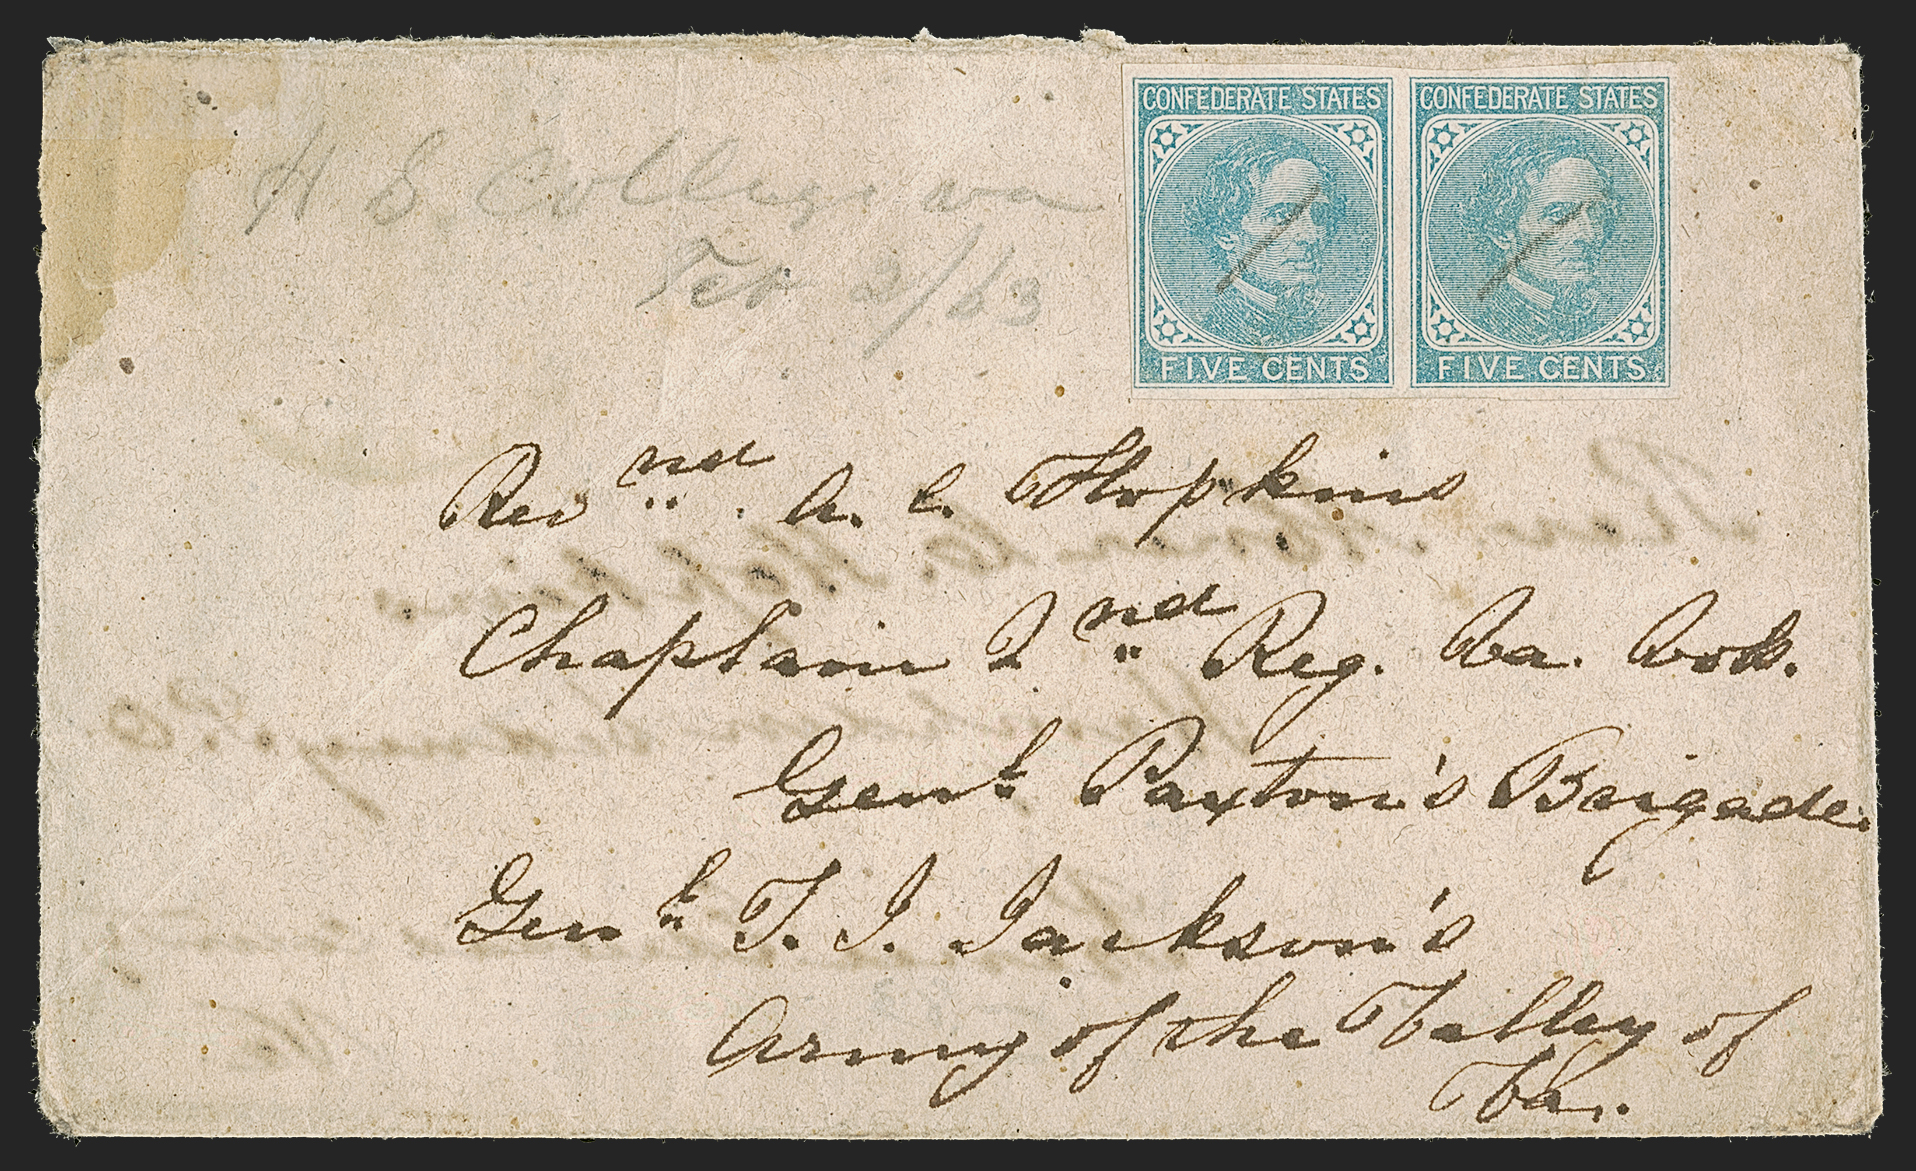 H S College va
Feb 2/63
CONFEDERATE STATES
FIVE CENTS
CONFEDERATE STATES
FIVE CENTS
Revnd. A. C. Hopkins
Chaplain 2nd Reg. Va. Vols.
Genl Paxton's Brigade.
Genl T. J. Jackson's
Army of the Valley of
Va.